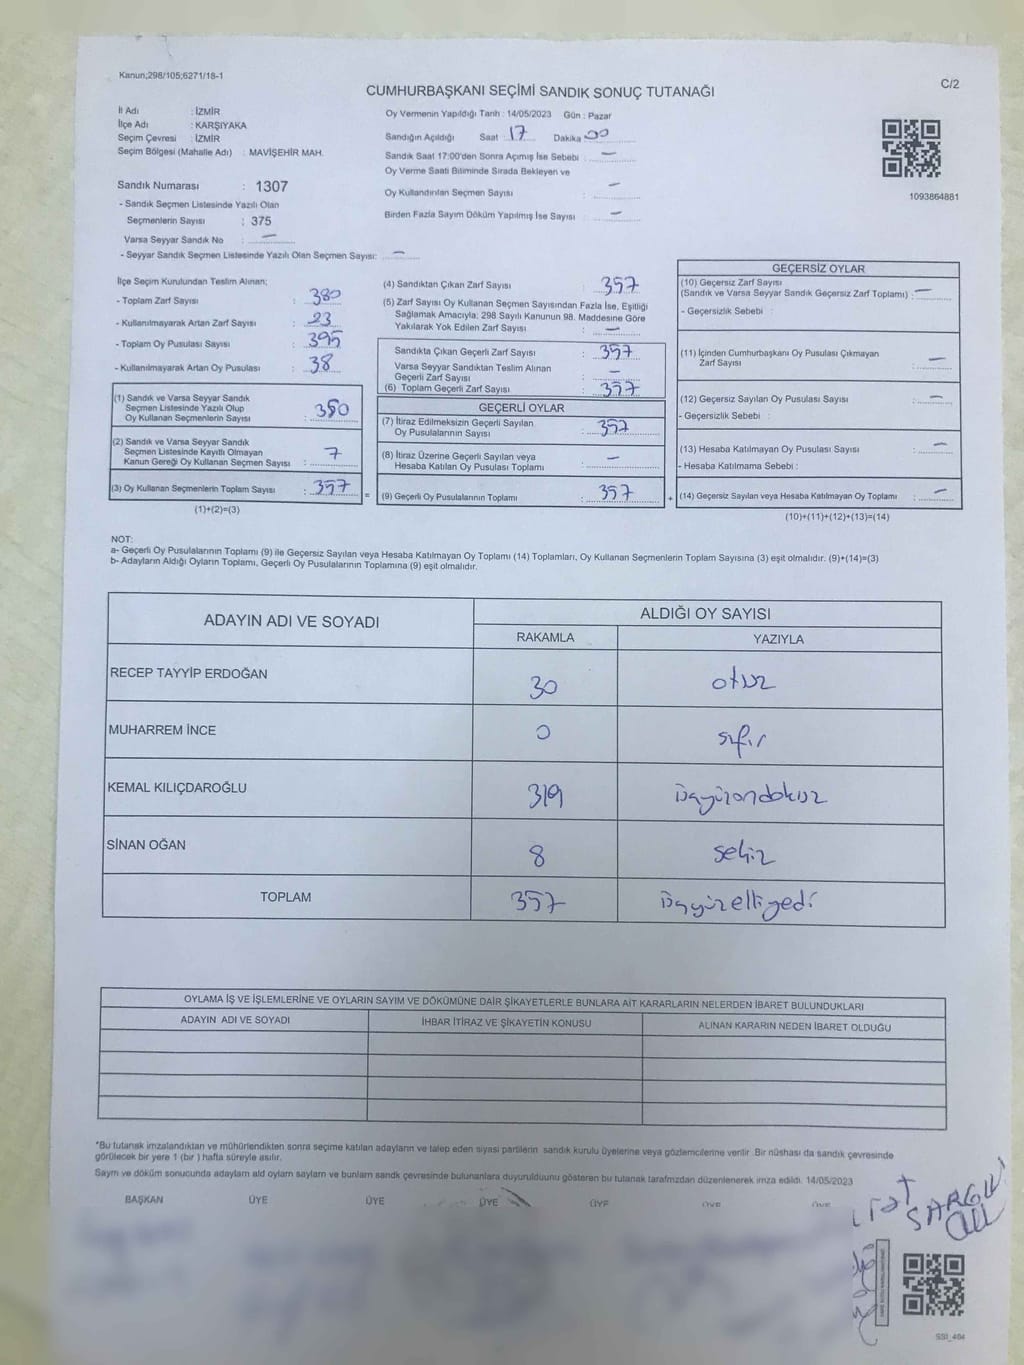 Kanun;298/105;6271/18-1
C/2
CUMHURBAŞKANI SEÇİMİ SANDIK SONUÇ TUTANAĞI
İl Adı : İZMİR
İlçe Adı : KARŞIYAKA
Seçim Çevresi : İZMİR
Seçim Bölgesi (Mahalle Adı) : MAVİŞEHİR MAH.
Sandık Numarası : 1307
- Sandık Seçmen Listesinde Yazılı Olan
Seçmenlerin Sayısı : 375
Varsa Seyyar Sandık No : —
- Seyyar Sandık Seçmen Listesinde Yazılı Olan Seçmen Sayısı: —
Oy Vermenin Yapıldığı Tarih : 14/05/2023 Gün : Pazar
Sandığın Açıldığı Saat 17 Dakika 00
Sandık Saat 17:00'den Sonra Açımış İse Sebebi : —
Oy Verme Saati Bitiminde Sırada Bekleyen ve
Oy Kullandırılan Seçmen Sayısı : —
Birden Fazla Sayım Döküm Yapılmış İse Sayısı : —
1093864881
İlçe Seçim Kurulundan Teslim Alınan;
- Toplam Zarf Sayısı : 380
- Kullanılmayarak Artan Zarf Sayısı : 23
- Toplam Oy Pusulası Sayısı : 395
- Kullanılmayarak Artan Oy Pusulası : 38
(1) Sandık ve Varsa Seyyar Sandık
Seçmen Listesinde Yazılı Olup
Oy Kullanan Seçmenlerin Sayısı : 350
(2) Sandık ve Varsa Seyyar Sandık
Seçmen Listesinde Kayıtlı Olmayan
Kanun Gereği Oy Kullanan Seçmen Sayısı : 7
(3) Oy Kullanan Seçmenlerin Toplam Sayısı : 357
(1)+(2)=(3)
(4) Sandıktan Çıkan Zarf Sayısı : 357
(5) Zarf Sayısı Oy Kullanan Seçmen Sayısından Fazla İse, Eşitliği
Sağlamak Amacıyla; 298 Sayılı Kanunun 98. Maddesine Göre
Yakılarak Yok Edilen Zarf Sayısı : —
Sandıkta Çıkan Geçerli Zarf Sayısı : 357
Varsa Seyyar Sandıktan Teslim Alınan
Geçerli Zarf Sayısı : —
(6) Toplam Geçerli Zarf Sayısı : 357
GEÇERLİ OYLAR
(7) İtiraz Edilmeksizin Geçerli Sayılan
Oy Pusulalarının Sayısı : 357
(8) İtiraz Üzerine Geçerli Sayılan veya
Hesaba Katılan Oy Pusulası Toplamı : —
= (9) Geçerli Oy Pusulalarının Toplamı : 357
GEÇERSİZ OYLAR
(10) Geçersiz Zarf Sayısı
(Sandık ve Varsa Seyyar Sandık Geçersiz Zarf Toplamı) : —
- Geçersizlik Sebebi :
(11) İçinden Cumhurbaşkanı Oy Pusulası Çıkmayan
Zarf Sayısı : —
(12) Geçersiz Sayılan Oy Pusulası Sayısı : —
- Geçersizlik Sebebi :
(13) Hesaba Katılmayan Oy Pusulası Sayısı —
- Hesaba Katılmama Sebebi :
+ (14) Geçersiz Sayılan veya Hesaba Katılmayan Oy Toplamı : —
(10)+(11)+(12)+(13)=(14)
NOT:
a- Geçerli Oy Pusulalarının Toplamı (9) ile Geçersiz Sayılan veya Hesaba Katılmayan Oy Toplamı (14) Toplamları, Oy Kullanan Seçmenlerin Toplam Sayısına (3) eşit olmalıdır. (9)+(14)=(3)
b- Adayların Aldığı Oyların Toplamı, Geçerli Oy Pusulalarının Toplamına (9) eşit olmalıdır.
ADAYIN ADI VE SOYADI
ALDIĞI OY SAYISI
RAKAMLA YAZIYLA
RECEP TAYYİP ERDOĞAN 30 otuz
MUHARREM İNCE 0 sıfır
KEMAL KILIÇDAROĞLU 319 üçyüzondokuz
SİNAN OĞAN 8 sekiz
TOPLAM 357 üçyüzelliyedi
OYLAMA İŞ VE İŞLEMLERİNE VE OYLARIN SAYIM VE DÖKÜMÜNE DAİR ŞİKAYETLERLE BUNLARA AİT KARARLARIN NELERDEN İBARET BULUNDUKLARI
ADAYIN ADI VE SOYADI İHBAR İTİRAZ VE ŞİKAYETİN KONUSU ALINAN KARARIN NEDEN İBARET OLDUĞU
*Bu tutanak imzalandıktan ve mühürlendikten sonra seçime katılan adayların ve talep eden siyasi partilerin sandık kurulu üyelerine veya gözlemcilerine verilir .Bir nüshası da sandık çevresinde
görülecek bir yere 1 (bir ) hafta süreyle asılır.
Sayım ve döküm sonucunda adaylarn ald oylarn saylarn ve bunlarn sandk çevresinde bulunanlara duyurulduunu gösteren bu tutanak tarafmzdan düzenlenerek imza edildi. 14/05/2023
BAŞKAN ÜYE ÜYE ÜYE ÜYE ÜYE ÜYE
SSI_404